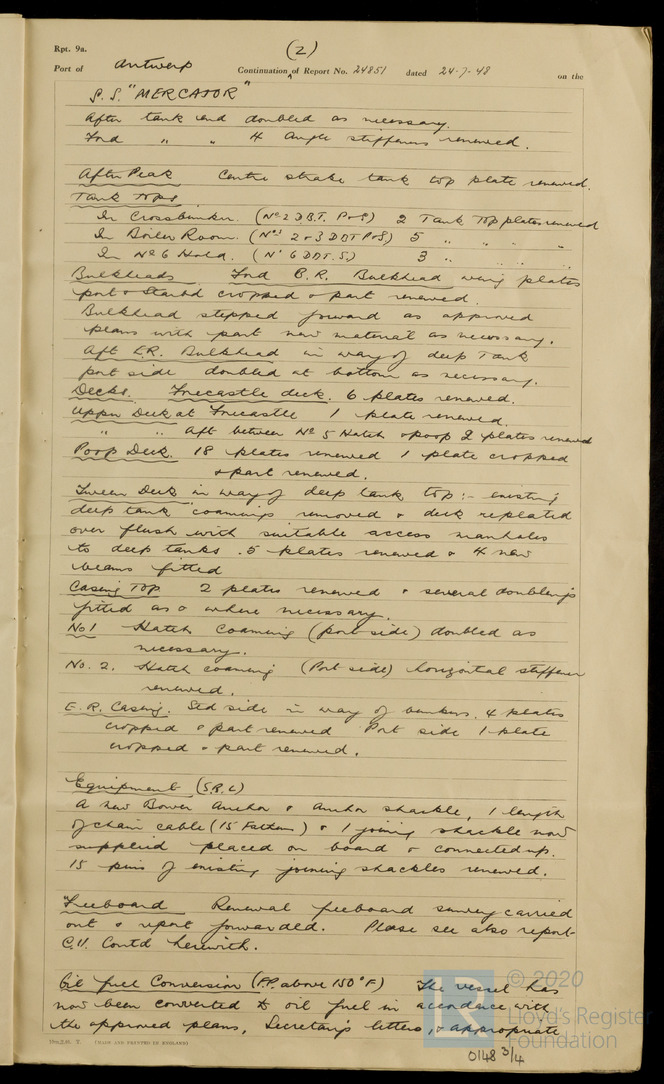 Rpt. 9a.
(2)
Port of Antwerp Continuation of Report No. 24851 dated 24-7-48 on the
S.S. "MERCATOR"
After tank end doubled as necessary.
Ford " " 4 Angle stiffeners renewed.
After Peak Centre strake tank top plate renewed.
Tank Tops.
In Crossbunker. (No 2 D.B.T. P&S) 2 Tank Top plates renewed
In Boiler Room. (Nos 2 & 3 DBT P&S) 5 " " "
In No 6 Hold. (No 6 DBT. S.) 3 " " "
Bulkheads. Ford B.R. Bulkhead wing plates
port & Starbd cropped & part renewed.
Bulkhead stepped forward as approved
plans with part new material as necessary.
Aft E.R. Bulkhead in way of deep Tank
port side doubled at bottom as necessary.
Decks. Forecastle deck. 6 plates renewed.
Upper Deck at Forecastle 1 plate renewed.
" " Aft between No 5 Hatch & poop 2 plates renewed
Poop Deck. 18 plates renewed 1 plate cropped
& part renewed.
Tween Deck in way of deep tank top:- existing
deep tank coamings removed & deck replated
over flush with suitable access manholes
to deep tanks. 5 plates renewed & 4 new
beams fitted
Casing Top 2 plates renewed & several doublings
fitted as & where necessary.
No 1 Hatch Coaming (port side) doubled as
necessary.
No. 2. Hatch coaming (Port side) horizontal stiffener
renewed.
E.R. Casing. Std side in way of bunkers. 4 plates
cropped & part renewed Port side 1 plate
cropped & part renewed.
Equipment (S.R.L)
A new Bower Anchor & Anchor shackle, 1 length
of chain cable (15 Fathoms) & 1 joining shackle now
supplied placed on board & connected up.
15 pins of existing joining shackles renewed.
Freeboard Renewal freeboard survey carried
out & report forwarded. Please see also report
C.11. Contd herewith.
Oil fuel Conversion (F.P. above 150°F) The vessel has
now been converted to oil fuel in accordance with
the approved plans, Secretary's letters, & appropriate
10m.2.46. T. (MADE AND PRINTED IN ENGLAND)
© 2020
Lloyd's Register
Foundation
LR
0148 3/4